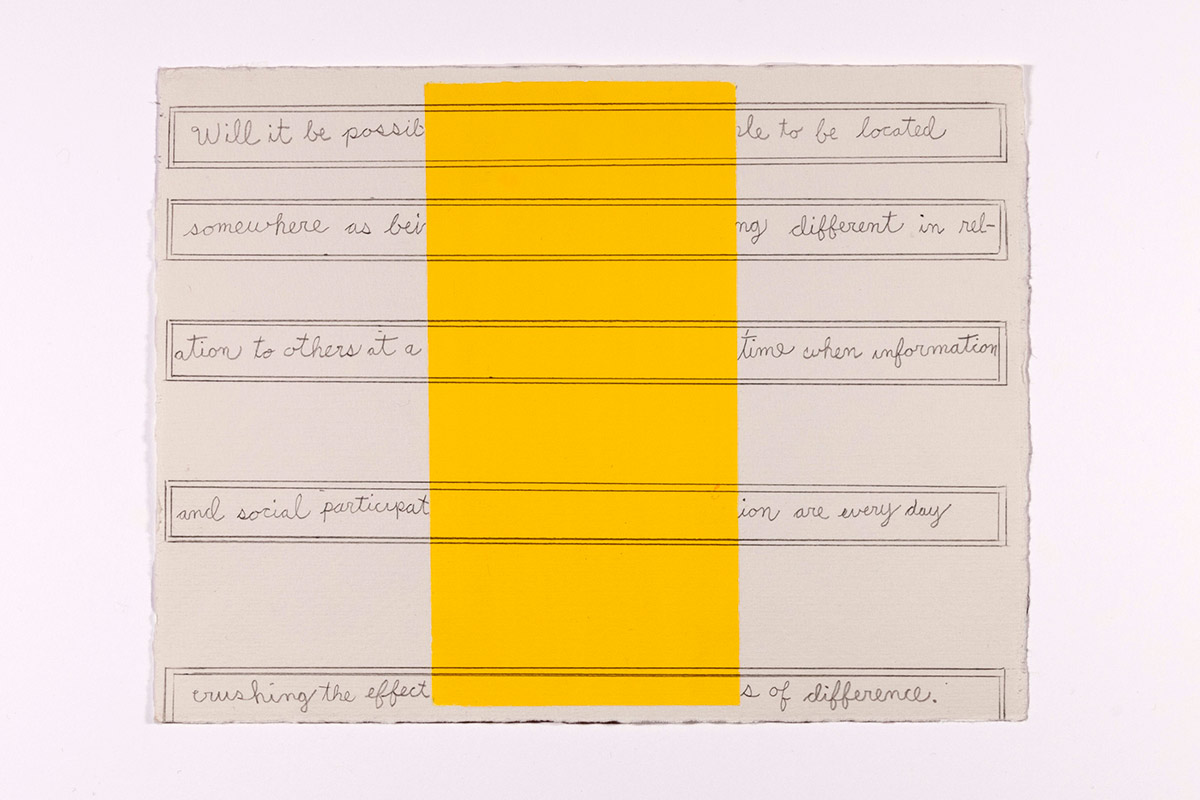 Will it be possib le to be located
somewhere as bei ng different in rel-
ation to others at a time when information
and social participat ion are every day
crushing the effect s of difference.